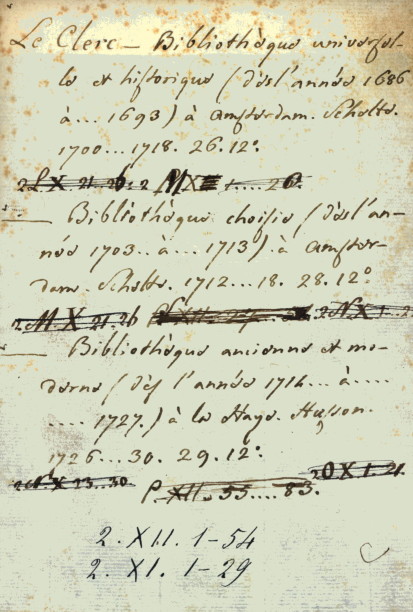 Le Clerc — Bibliothèque universel-
le et historique (dès l'année 1686
à ... 1693) à Amsterdam. Schelte.
1700 ... 1718. 26. 12°.
Bibliothèque choisie (dès l'an-
née 1703 .. à ... 1713) à Amster-
dam. Schelte. 1712 ... 18. 28. 12°
2. M. X. 21. 26
Bibliothèque ancienne et mo-
derne (dès l'année 1714 ... à ....
.... 1727.) à la Haye. Husson.
1726 ... 30. 29. 12°.
X 23..30 2 O X. 1. 21.
P. XII. 55 .... 83.
2. XII. 1-54
2. XI. 1-29